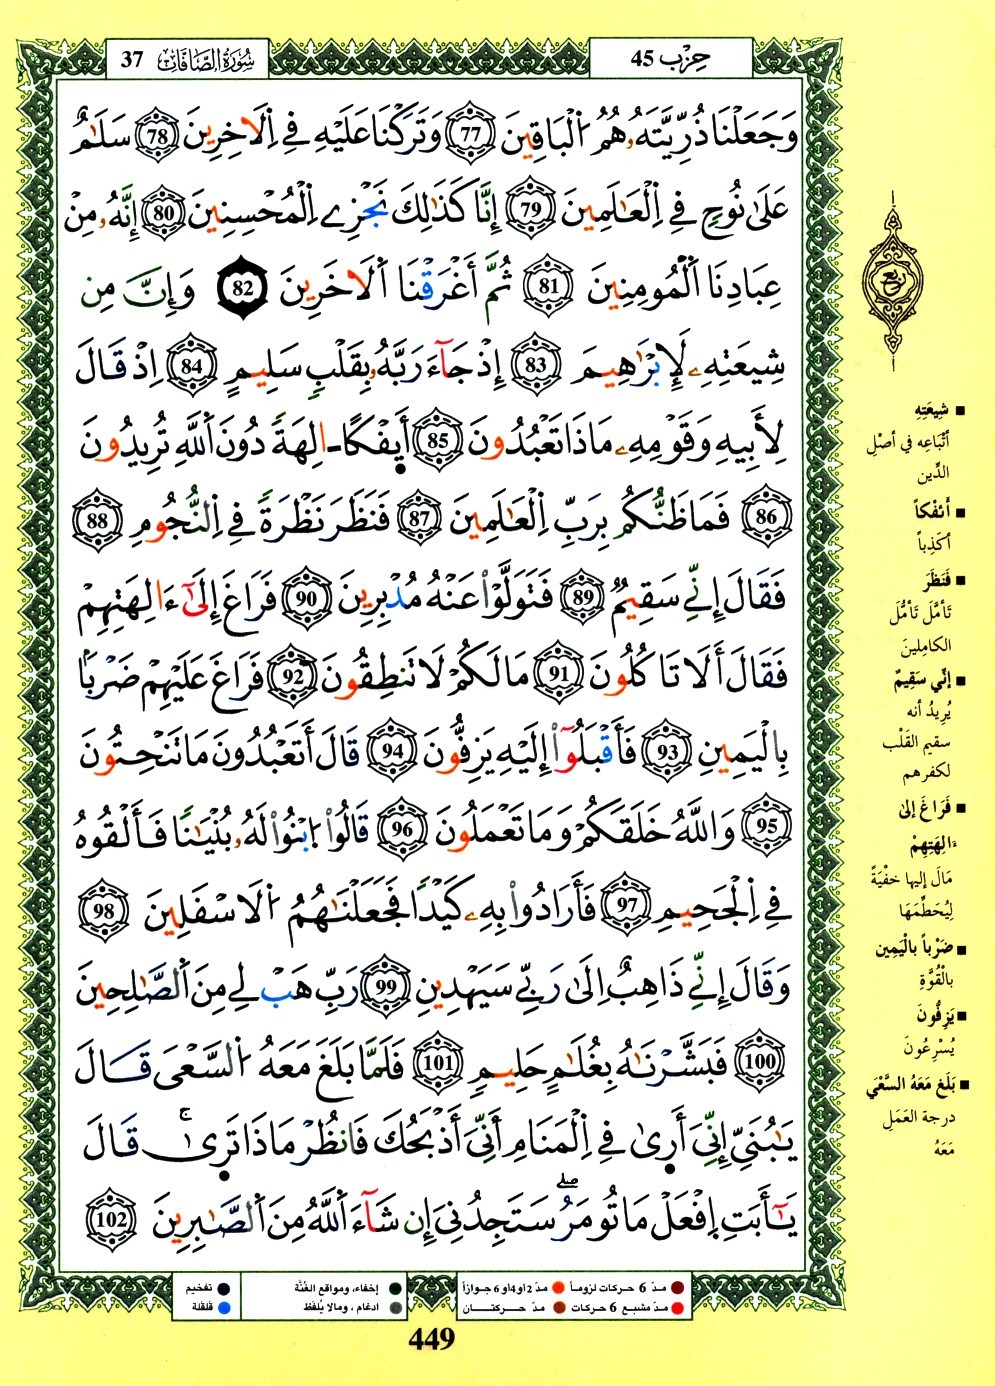 حِزْب 45
سُورَةُ الصَّافَّاتِ 37
وَجَعَلْنَا ذُرِّيَّتَهُۥ هُمُ اُ۬لْبَاقِينَ 77 وَتَرَكْنَا عَلَيْهِ فِے اِ۬لَاخِرِينَ 78 سَلَٰمٌ
عَلَىٰ نُوحٖ فِے اِ۬لْعَٰلَمِينَ 79 إِنَّا كَذَٰلِكَ نَجْزِے اِ۬لْمُحْسِنِينَ 80 إِنَّهُۥ مِنْ
عِبَادِنَا اَ۬لْمُومِنِينَ 81 ثُمَّ أَغْرَقْنَا اَ۬لَاخَرِينَ 82 وَإِنَّ مِن
شِيعَتِهِۦ لَإِبْرَٰهِيمَ 83 إِذْ جَآءَ رَبَّهُۥ بِقَلْبٖ سَلِيمٍ 84 اِذْ قَالَ
لِأَبِيهِ وَقَوْمِهِۦ مَاذَا تَعْبُدُونَ 85 أَئِفْكًا ـ اٰلِهَةٗ دُونَ اَ۬للَّهِ تُرِيدُونَ
86 فَمَا ظَنُّكُم بِرَبِّ اِ۬لْعَٰلَمِينَ 87 فَنَظَرَ نَظْرَةٗ فِے اِ۬لنُّجُومِ 88
فَقَالَ إِنِّے سَقِيمٞ 89 فَتَوَلَّوْاْ عَنْهُ مُدْبِرِينَ 90 فَرَاغَ إِلَىٰٓ ءَالِهَتِهِمْ
فَقَالَ أَلَا تَاكُلُونَ 91 مَا لَكُمْ لَا تَنطِقُونَ 92 فَرَاغَ عَلَيْهِمْ ضَرْبَاۢ
بِالْيَمِينِ 93 فَأَقْبَلُوٓاْ إِلَيْهِ يَزِفُّونَ 94 قَالَ أَتَعْبُدُونَ مَا تَنْحِتُونَ
95 وَاللَّهُ خَلَقَكُمْ وَمَا تَعْمَلُونَ 96 قَالُواْ اُ۪بْنُواْ لَهُۥ بُنْيَٰنٗا فَأَلْقُوهُ
فِے اِ۬لْجَحِيمِ 97 فَأَرَادُواْ بِهِۦ كَيْدٗا فَجَعَلْنَٰهُمُ اُ۬لَاسْفَلِينَ 98
وَقَالَ إِنِّے ذَاهِبٌ اِلَىٰ رَبِّے سَيَهْدِينِ 99 رَبِّ هَبْ لِے مِنَ اَ۬لصَّٰلِحِينَ
100 فَبَشَّرْنَٰهُ بِغُلَٰمٍ حَلِيمٖ 101 فَلَمَّا بَلَغَ مَعَهُ اُ۬لسَّعْىَ قَالَ
يَٰبُنَىِّ إِنِّىَ أَر۪ىٰ فِے اِ۬لْمَنَامِ أَنِّىَ أَذْبَحُكَ فَانظُرْ مَاذَا تَر۪ىٰ ۚ قَالَ
يَٰٓأَبَتِ اِ۪فْعَلْ مَا تُومَرُ ۖ سَتَجِدُنِىَ إِن شَآءَ اَ۬للَّهُ مِنَ اَ۬لصَّٰبِرِينَ 102
ربع
■ شِيعَتِهِ
أَتْبَاعِه في أَصْلِ
الدِّين
■ أَئِفْكاً
أَكَذِباً
■ فَنَظَرَ
تَأَمَّلَ تَأَمُّلَ
الكامِلينَ
■ إنِّي سَقِيمٌ
يُرِيدُ أنه
سقيم القَلْب
لكفرهم
■ فَرَاغَ إلىٰ
ءَالِهَتِهِمْ
مَالَ إليها خفْيَةً
لِيُحَطِّمَهَا
■ ضَرْباً بالْيَمِين
بالْقُوَّةِ
■ يَزِفُّونَ
يُسْرِعُونَ
■ بَلَغَ مَعَهُ السَّعْي
درجة العَمَلِ
مَعَهُ
مدّ 6 حركات لزوماً ● مدّ 2 أو 4 أو 6 جوازاً ● إخفاء، ومواقع الغُنَّة ● تفخيم ●
مدّ مشبع 6 حركات ● مدّ حركتان ● ادغام، ومالا يُلفَظ ● قلقلة ●
449